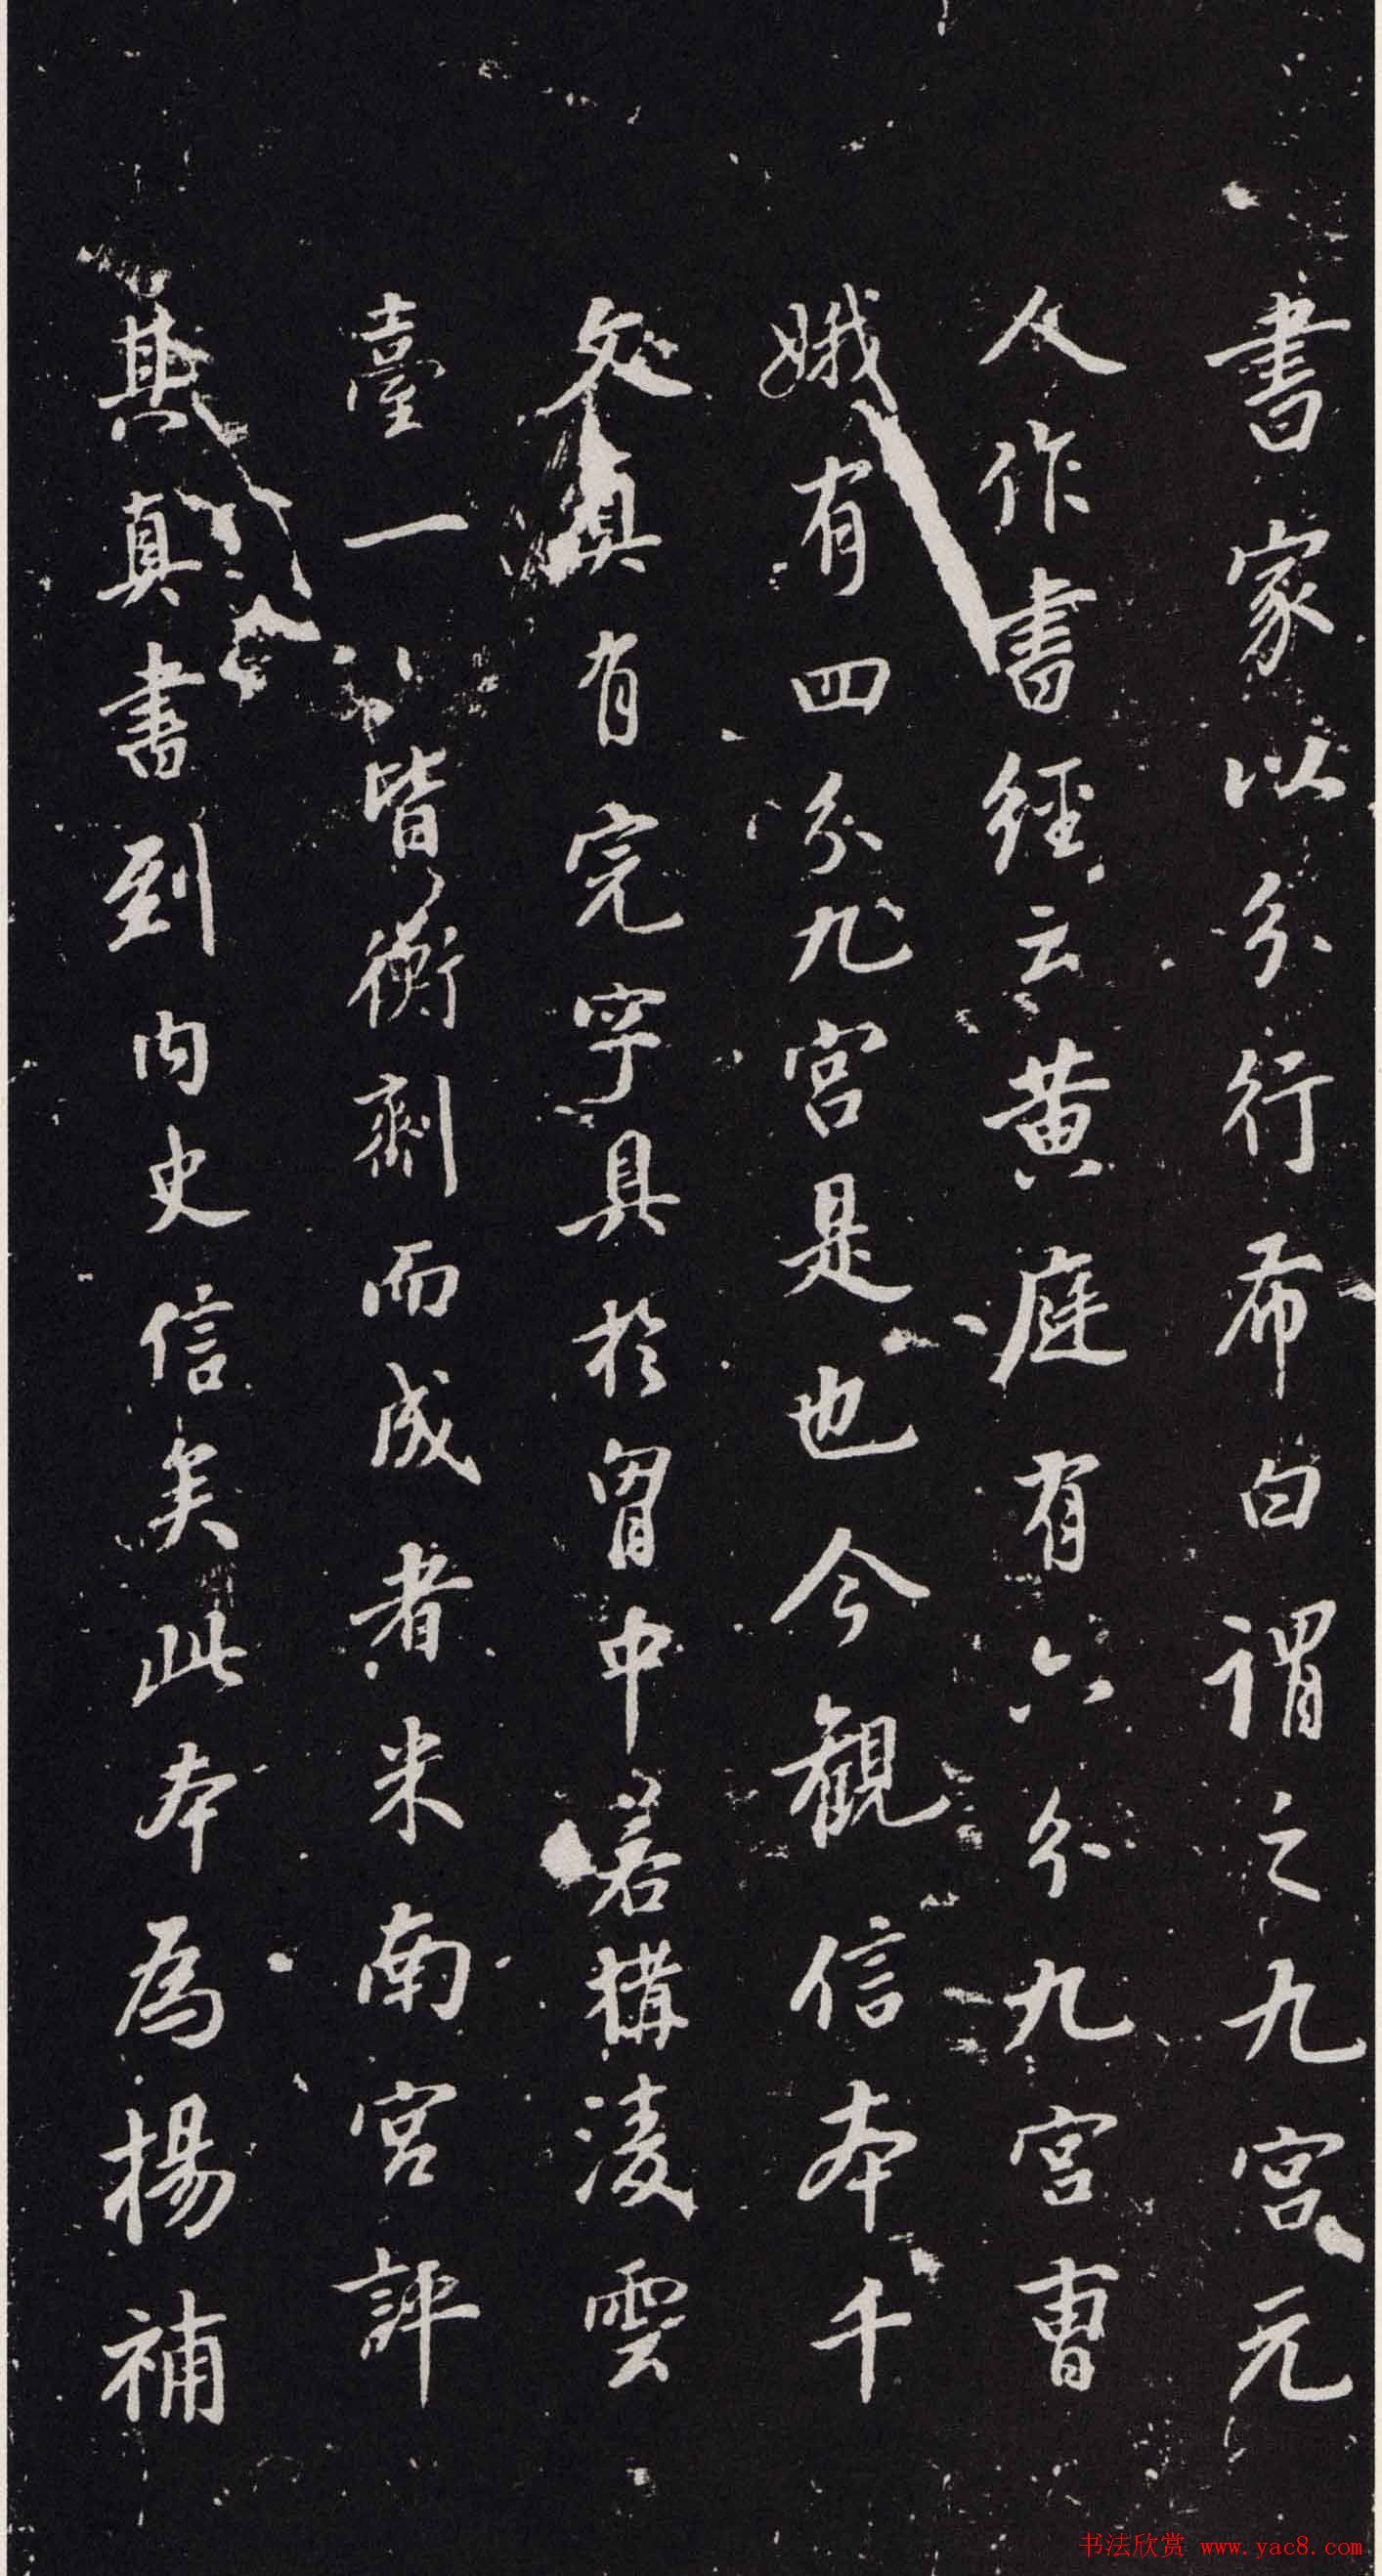 書家以分行布白謂之九宮元
人作書經云黃庭有六分九宮曹
娥有四分九宮是也今觀信本千
文真有完字具於胷中若構凌雲
臺一一皆衡劑而成者米南宮評
其真書到內史信矣此本為楊補
书法欣赏 www.yac8.com